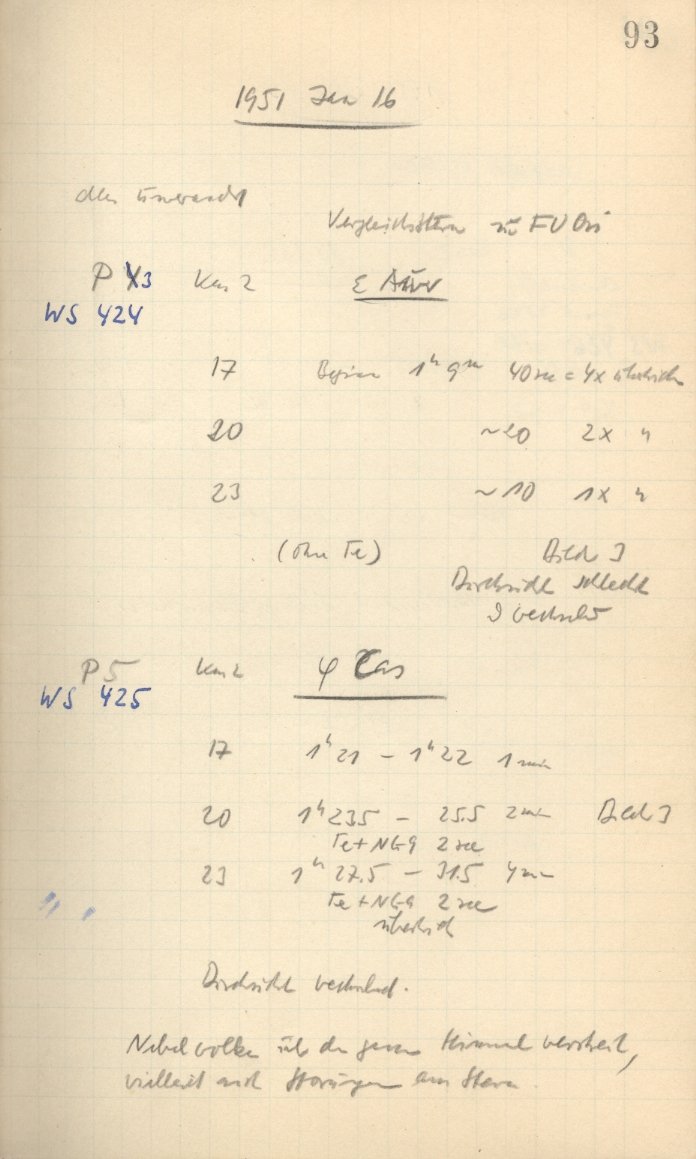 93
1951 Jan 16
alles
Vergleichsstern zu FU Ori
P 3 Kas 2 ε Aur
WS 424
17 Beginn 1h 9m 40 sec = 4x überstrich
20 ~20 2x "
23 ~10 1x "
(ohne Te) Bild 3
Durchsicht schlecht
P5 Kas 2 φ Cas
WS 425
17 1h 21 - 1h 22 1 min
20 1h 23.5 - 25.5 2 min Bild 3
Te + NG9 2 sec
23 1h 27.5 - 31.5 4 min
Te + NG9 2 sec
Durchsicht wechselnd.
Nebelwolke über den ganzen Himmel verteilt,
vielleicht auch Störungen am Stern.